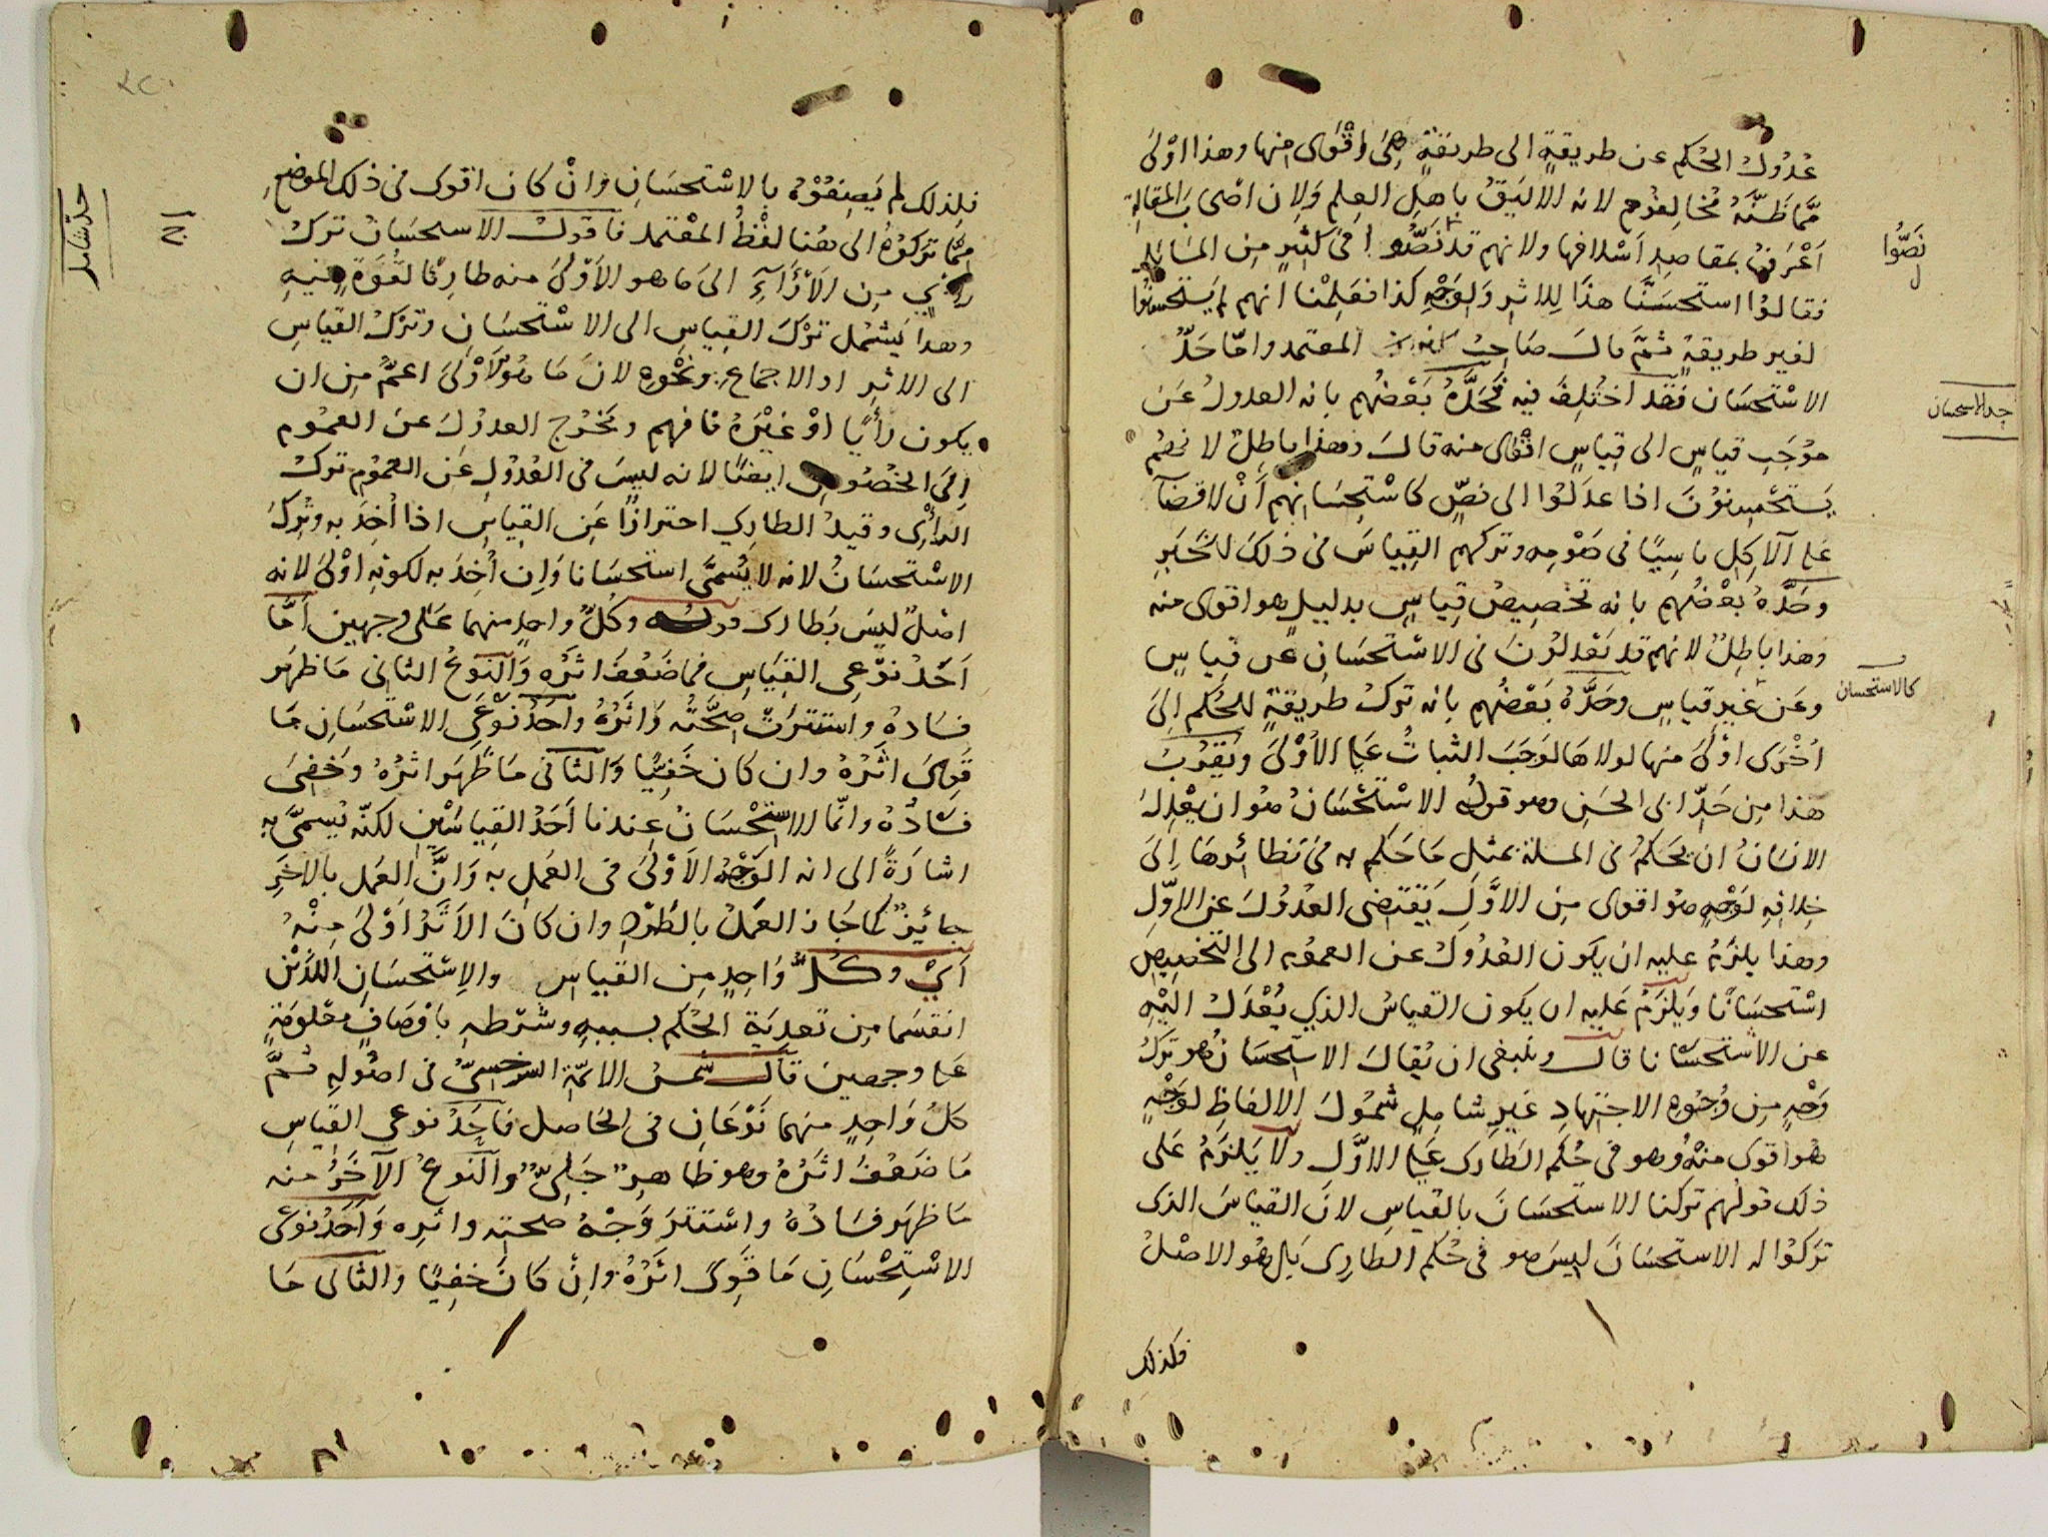 عُدُولُ الحُكمِ عن طريقةٍ الى طريقةٍ هىَ اقْوٰى منها وهذا اوْلىَ
ممّا ظَنَّهُ مُخالِفوُهم لانه الاليَقُ باهلِ العِلمِ وَلِان اصْحابَ المقالةِ
اَعْرَفُ بمقاصدِ اَسْلافها ولانهم قد نَصُّوا فى كثيرٍ مِن المسَائلِ
نَصُّوا
فقالوُا استحسَنَّا هذَا لِلاثرِ وَلِوَجْهِ كذا فعَلِمْنا انهم لم يَستحسِنُوا
لغير طريقةٍ ثمَّ قالَ صَاحِبُ المعتمد وامّا حَدُّ
الاسْتحسَان فَقد اختُلِفَ فيه فَحَدَّهُ بَعْضُهم بانه العدولُ عَن
حد الاستحسان
موُجَبِ قياسٍ الى قِياسٍ اقْوٰى منه قالَ وهذا باطِلٌ لانهم
يَستحْسِنوُنَ اذا عدَلوُا الى نصٍّ كاسْتِحسَانِهم أَنْ لا قضآءَ
على الآكِلِ ناسِيًا فى صَوْمِه وتركهم القِياسَ فى ذلكَ للخَبَرِ
وحَدَّهُ بعْضُهم بانه تخصِيصُ قِياسٍ بدليلٍ هو اقوى منه
وهذا باطِلٌ لانهم قد يَعْدِلوُنَ فى الاسْتحسَانِ عن قِياسٍ
وعَن غيرِ قياسٍ وحَدَّهُ بَعْضُهم بانه تركُ طريقةٍ للحُكمِ اِلىَ
كالاستحسان
اُخْرَى اوْلىَ منها لولاها لوَجَبَ الثباتُ على الاُوْلىَ ويَقرُبُ
هذا مِن حَدِّ ابى الحسَنِ وهو قولُه الاسْتحْسَانُ هوُ ان يَعْدِلَ
الانسانُ ان يحكمُ فى المسلة بمثلِ مَا حَكم به فى نَظائِرهَا اِلىَ
خِلافِهِ لِوَجْهٍ هوُ اقوى مِن الاوَّلِ يَقتضى العُدوُلَ عن الاوّلِ
وهذا يلزَمُ عليه ان يكون العُدوُلُ عن العموُم الى التخصِيصِ
اسْتحسَانًا ويَلزَمُ عَليهِ ان يكون القياسُ الذي يُعْدَلُ اليْهِ
عن الاسْتحسَانا قالَ وينبغى ان يُقالَ الاستحسَانُ هو تركُ
وَجْهٍ مِن وُجُوهِ الاجتِهادِ غيرِ شامِلٍ شموُلَ الالفاظِ لِوَجْهٍ
هو اقوى منهُ وهو فى حُكمِ الطارى على الاوَّلِ ولا يَلزَمُ عَلى
ذلك قولهم تركنا الاستحسَانَ بالقياسِ لانّ القياسَ الذى
تركوُا له الاستحسَانَ ليسَ هو فى حُكمِ الطارِى بَل هُو الاصْلُ
فلذلك
فلِذلِك لم يَصِفوُهُ بالاسْتحسَانِ وَانْ كان اقوى فى ذلك الموضعِ
ممّا تَركوُهُ الى هُنا لفْظُ المعْتمد فاقولُ الاستحسَانُ تَركُ
رأيٍ مِن الاَرَآءِ الىَ مَا هو الاَوْلىَ منه طارِئًا لقُوَّةٍ فيهِ
حدٌّ شامل
وهذا يَشتمُل تَرْكَ القِياسِ الى الاسْتحسَانِ وتَرْكَ القياسِ
الى الاثرِ او الاجماعِ ونحْوِهِ لانَ مَا هوُ الاَوْلىَ اعمُّ مِن ان
يكون رَأْيًا اوْ غيْرَهُ فافهم ويَخرُج العدوُلُ عن العموُم
اِلىَ الخُصُوصِ ايضًا لانه ليسَ فى العُدوُلِ عَن العموُمِ تركُ
الرأْىِ وقيدُ الطارِي احترازًا عَن القِياسِ اذا اُخِذَ به وتُرِكَ
الاسْتحسَانُ لانه لا يُسَمَّى استحسَانا وَاِن اُخِذ به لكونِهِ اوْلىَ لانه
اصْلٌ ليسَ بَطارى قوله وكُلُّ واحدٍ منهما عَلى وجهين امَّا
اَحَدُ نوْعى القِيَاسِ فما ضَعُفَ اثَرُه وَالنَوعُ الثانى مَا ظهَر
فسَادهُ واستتَرَتْ صِحَّتُه وَاثَرُهُ واَحَدُ نَوْعَىِ الاسْتحسَانِ مَا
قَوِىَ اثَرُهُ وان كان خَفِيًّا وَالثانى مَا ظَهَر اثرُهُ وخَفِىَ
فسَادُهُ وانمّا الاستِحْسَانُ عِندنا اَحَدُ القِياسَيْنِ لكنّه يُسمَّى به
اشارَةً الى انه الوَجْهُ الاَوْلىَ فى العَملِ به وَانَّ العَمل بالاخَرِ
جائِزٌ كما جَاز العَمَلُ بالطَّرْدِ وان كانَ الاَثَرُ اَوْلىَ مِنْهُ
اَىْ وكُلُّ وَاحِدٍ مِن القياسِ والاِسْتحسَانِ اللذَيْن
انقسَما مِن تعديَةِ الحُكمِ بسببِهِ وشَرْطِهِ باوْصَافٍ معْلوُمَةٍ
على وجهين قالَ شمسُ الائمّةِ السَرَخسِىُّ فى اصُولِهِ ثمّ
كلُّ وَاحِدٍ منهما نَوْعَانِ فى الحَاصلِ فاَحَدُ نوعى القِياسِ
مَا ضَعُفَ اثَرُهُ وهو ظاهِرٌ جَلِىٌّ والنوعُ الآخَرُ منه
مَا ظهَر فسَادُهُ واسْتتَرَ وَجْهُ صحتِه واثَرِه وَاَحَدُ نَوعَى
الاسْتِحْسَانِ مَا قَوِىَ اثَرُهُ وانْ كانَ خفِيًّا والثانى مَا